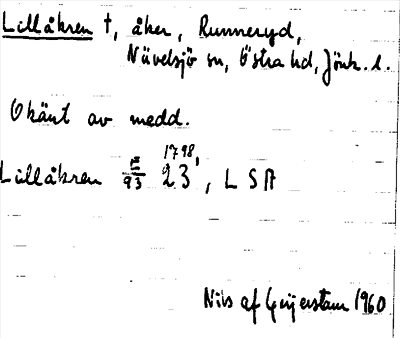 Lillåkren †, åker, Runneryd,
Nävelsjö sn, Östra hd, Jönk. l.
Okänt av medd.
Lillåkren E/93 23 1798, LSA
Nils af Geijerstam 1960